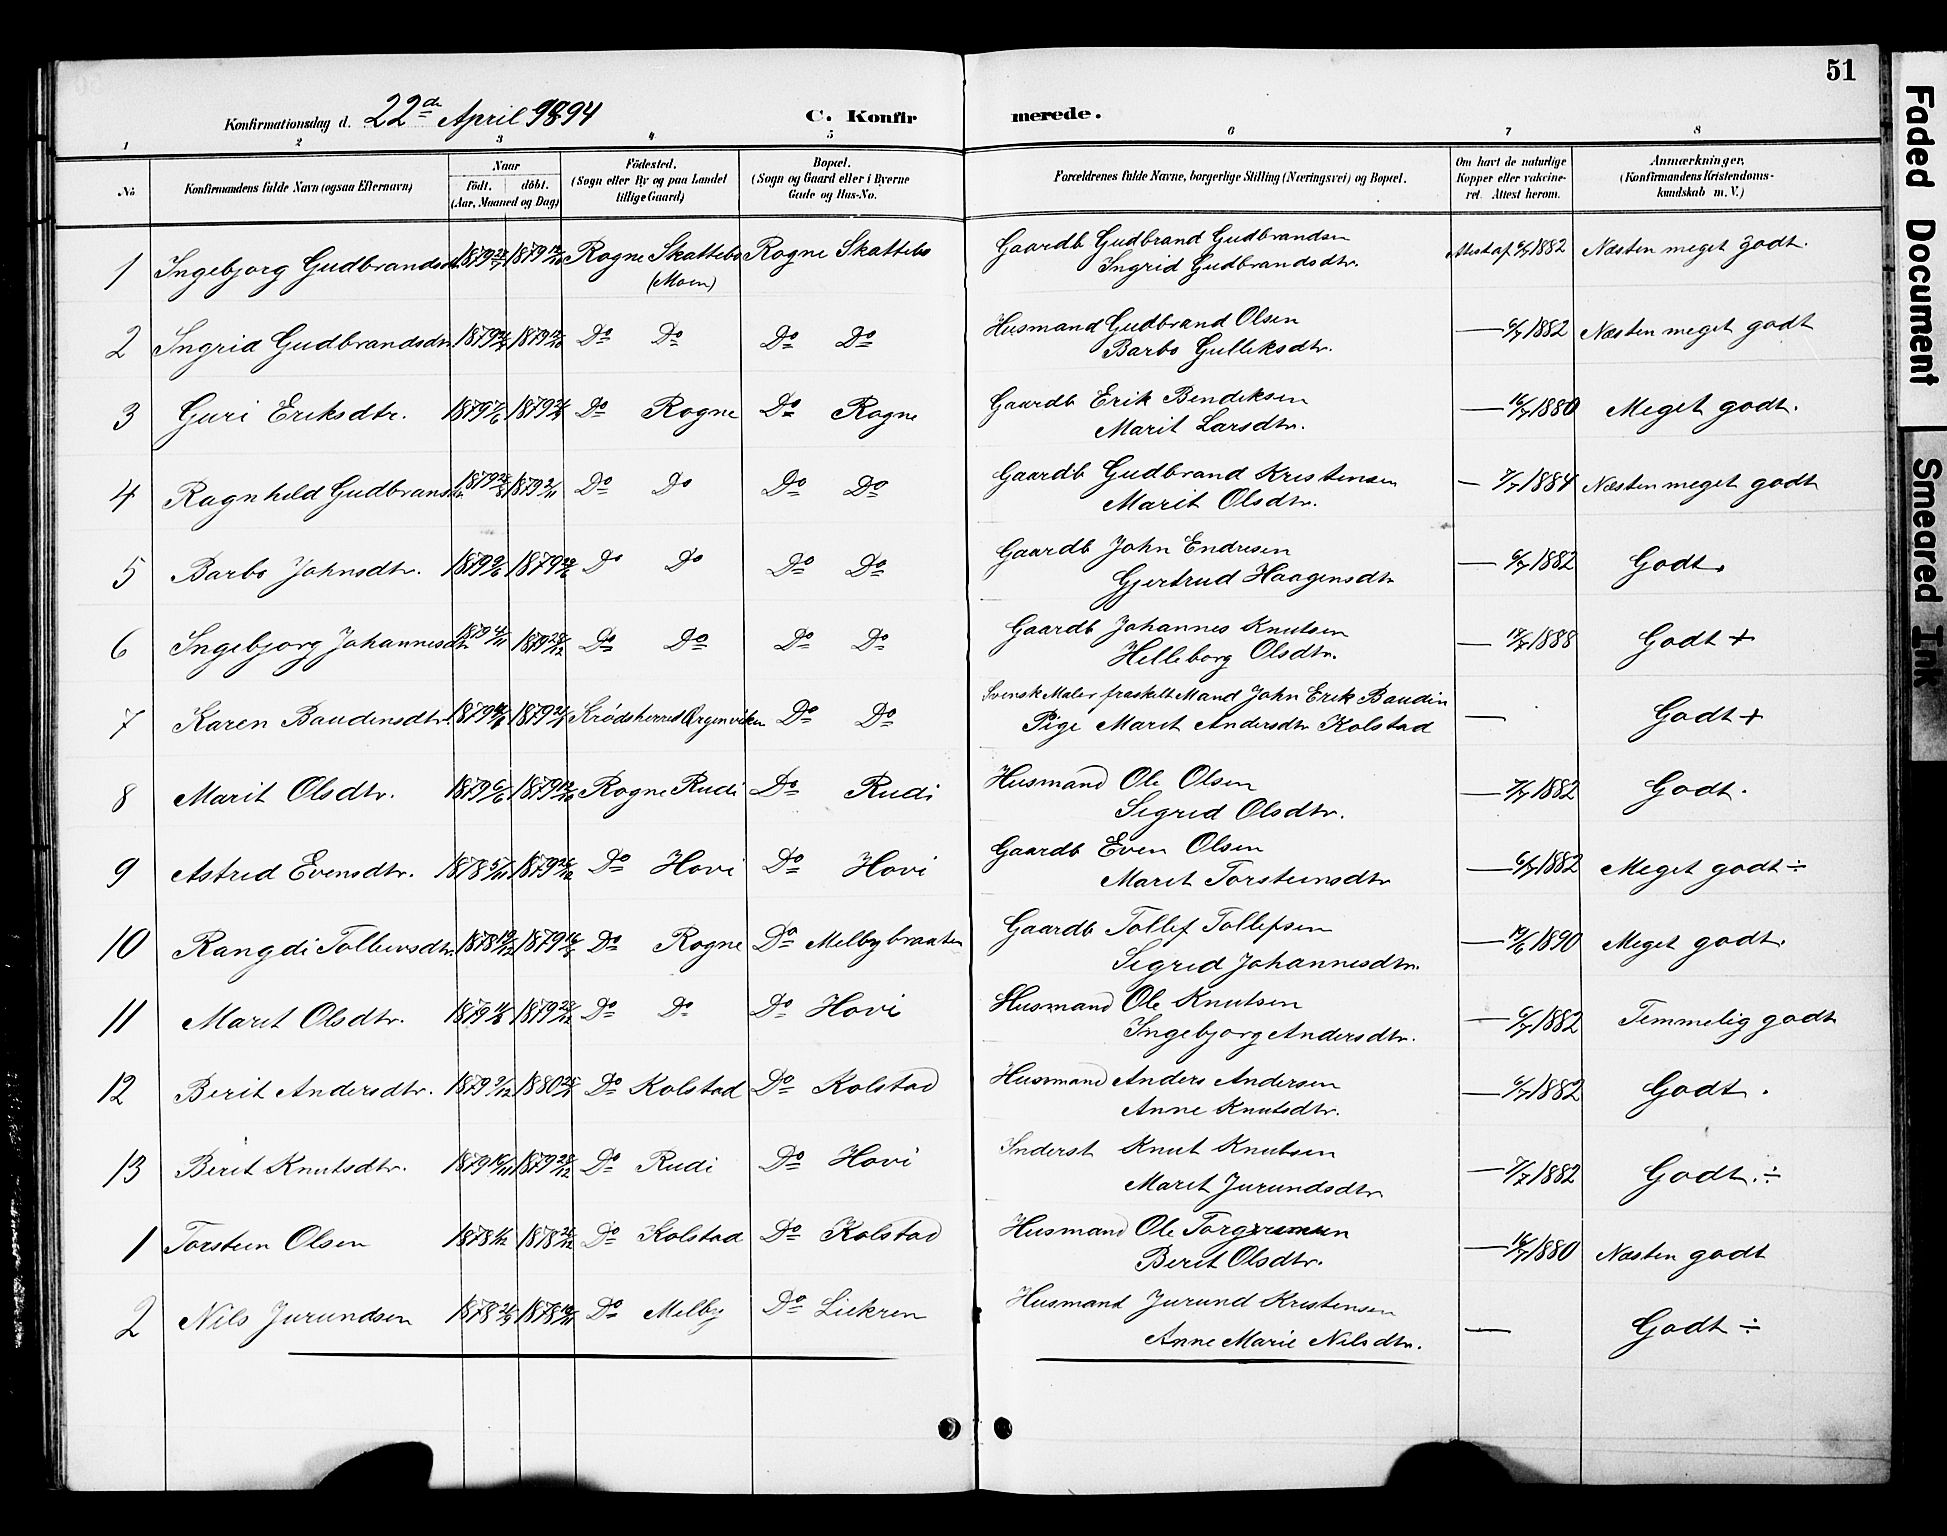 51
Konfirmationsdag d. 22de April 1894 C. Konfirmerede.
1 2 3 4 5 6 7 8
No Konfirmandens fulde Navn (ogsaa Efternavn) Naar født. døbt. (Aar, Maaned og Dag) Fødested. (Sogn eller By og paa Landet tillige Gaard) Bopæl. (Sogn og Gaard eller i Byerne Gade og Hus-No. Forældrenes fulde Navne, borgerlige Stilling (Næringsvei) og Bopæl. Om havt de naturlige Kopper eller vakcineret. Attest herom. Anmærkninger, (Konfirmandens Kristendomskundskab m. V.)
1 Ingebjorg Gudbrandsdtr. 1879 1879 Rogne Skattebo (Moen) Rogne Skattebo Gaardb Gudbrand Gudbrandsen Attest af 6/7 1882 Næsten meget godt.
Ingrid Gudbrandsdtr.
2 Ingrid Gudbrandsdtr. 1879 1879 Do Do Do Do Husmand Gudbrand Olsen — 6/7 1882 Næsten meget godt
Barbo Gulleksdtr.
3 Guri Eriksdtr. 1879 1879 Do Rogne Do Rogne Gaardb Erik Bendiksen — 16/7 1880 Meget godt.
Marit Larsdtr.
4 Ragnhild Gudbransdtr 1879 1879 2/11 Do Do Do Do Gaardb Gudbrand Kristensen — 7/7 1884 Næsten meget godt
Marit Olsdtr.
5 Barbo Johnsdtr. 1879 1879 Do Do Do Do Gaardb John Endresen — 6/7 1882 Godt.
Gjertrud Haagensdtr
6 Ingebjorg Johannesdtr 1879 4/11 1879 28/12 Do Do Do Do Gaardb Johannes Knutsen — 1888 Godt +
Helleborg Olsdtr.
7 Karen Baudinsdtr 1879 1879 Krødsherred Ørgenviken Do Do Svensk Maler fraskilt Mand John Erik Baudin — Godt +
Pige Marit Andersdtr Kolstad
8 Marit Olsdtr. 1879 1879 Rogne Rudi Do Rudi Husmand Ole Olsen — 7/7 1882 Godt.
Sigrid Olsdtr.
9 Astrid Evensdtr. 1878 1879 Do Hovi Do Hovi Gaardb Even Olsen — 6/7 1882 Meget godt ÷
Marit Torsteinsdtr
10 Rangdi Tollevsdtr. 1878 1879 Do Rogne Do Melbybraaten Gaardb Tollef Tollefsen — 19/6 1890 Meget godt.
Sigrid Johannesdtr.
11 Marit Olsdtr. 1879 1879 28/12 Do Do Do Hovi Husmand Ole Knutsen — 6/7 1882 Temmelig godt
Ingebjorg Andersdtr.
12 Berit Andersdtr. 1879 9/12 1880 Do Kolstad Do Kolstad Husmand Anders Andersen — 6/7 1882 Godt.
Anne Knutsdtr.
13 Berit Knutsdtr. 1879 1879 28/12 Do Rudi Do Hovi Inderst Knut Knutsen — 7/7 1882 Godt. ÷
Marit Jurundsdtr
1 Torstein Olsen 1878 1/12 1878 26/12 Do Kolstad Do Kolstad Husmand Ole — 16/7 1880 Næsten godt
Berit Olsdtr.
2 Nils Jurundsen 1878 1878 Do Melby Do Liekren Husmand Jurund Kristensen — Godt ÷
Anne Marie Nilsdtr.
Faded Document
Smeared Ink